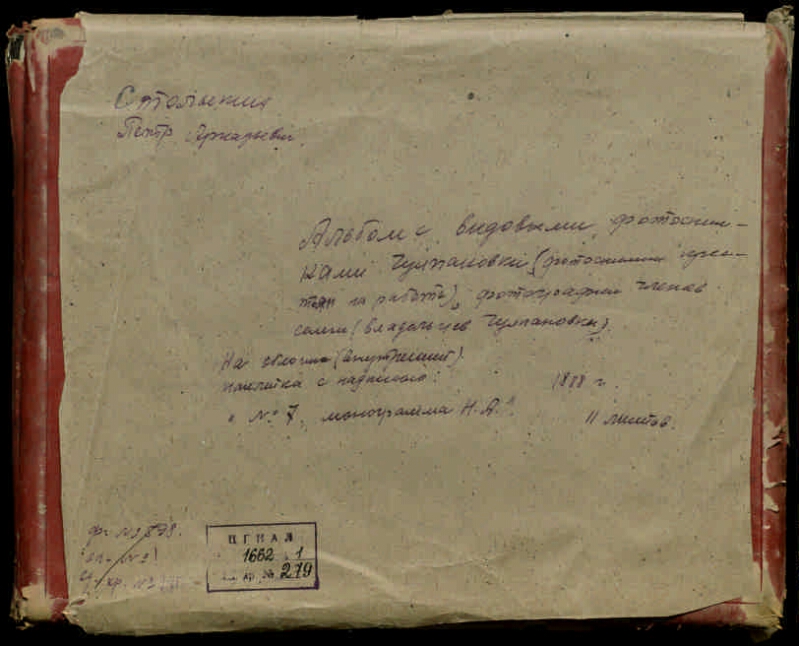 Столыпин
Петр Аркадьевич.
Альбом с видовыми фотосним-
ками Чулпановки (фотоснимки крес-
тян на работе), фотографии членов
семьи (владельцев Чулпановки).
На обложке (внутренней)
наклейка с надписью: 1888 г.
"№ 7, монограмма Н.А." 11 листов.
ф. № 878.
оп. № 1
ед. хр. №
ЦГИАЛ
1662 1
ед. хр. № 279